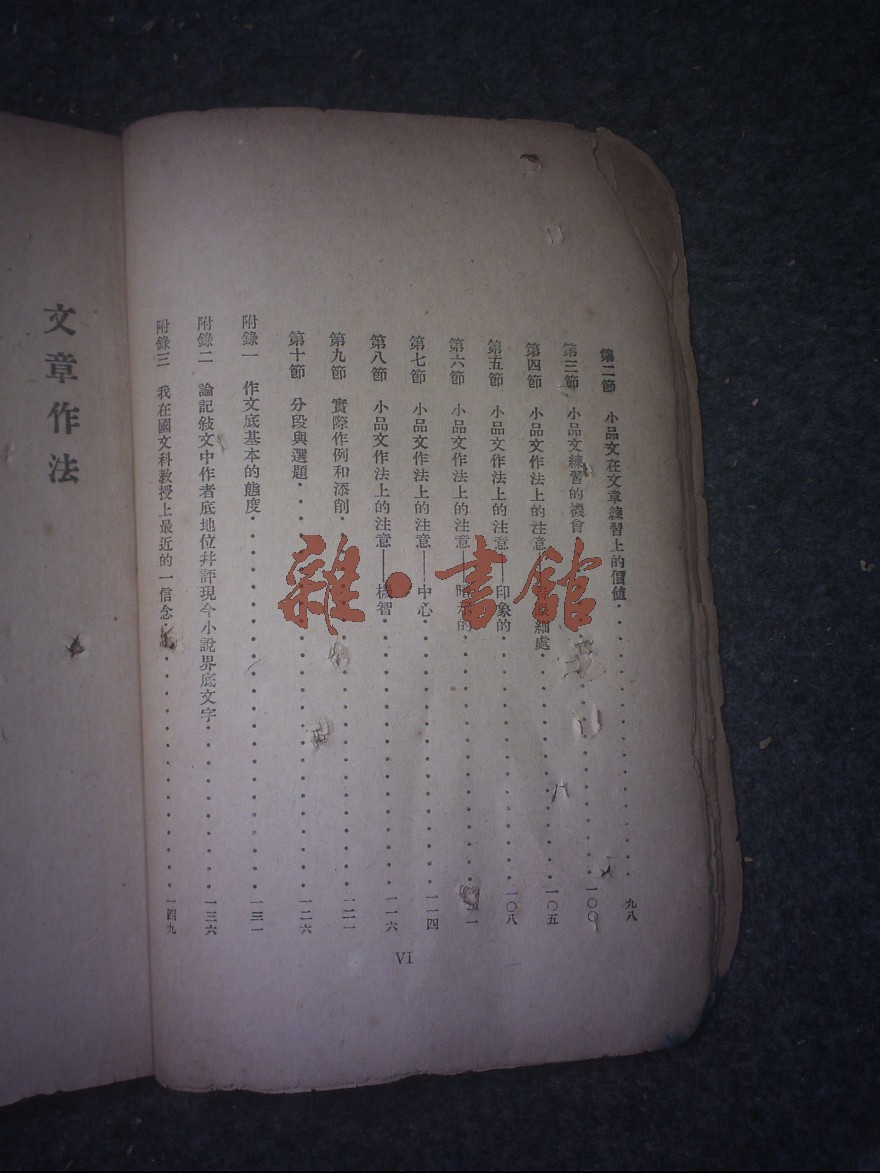 第二節　小品文在文章練習上的價值······九八
第三節　小品文練習的機會······一〇〇
第四節　小品文作法上的注意 細處······一〇五
第五節　小品文作法上的注意——印象的······一〇八
第六節　小品文作法上的注意——暗示的······一一
第七節　小品文作法上的注意——中心······一一四
第八節　小品文作法上的注意——機智······一一六
第九節　實際作例和添削······一二一
第十節　分段與選題······一二六
附錄一　作文底基本的態度······一三一
附錄二　論記敍文中作者底地位幷評現今小說界底文字······一三六
附錄三　我在國文科教授上最近的一信念······一四九
VI
文章作法
雜·書館